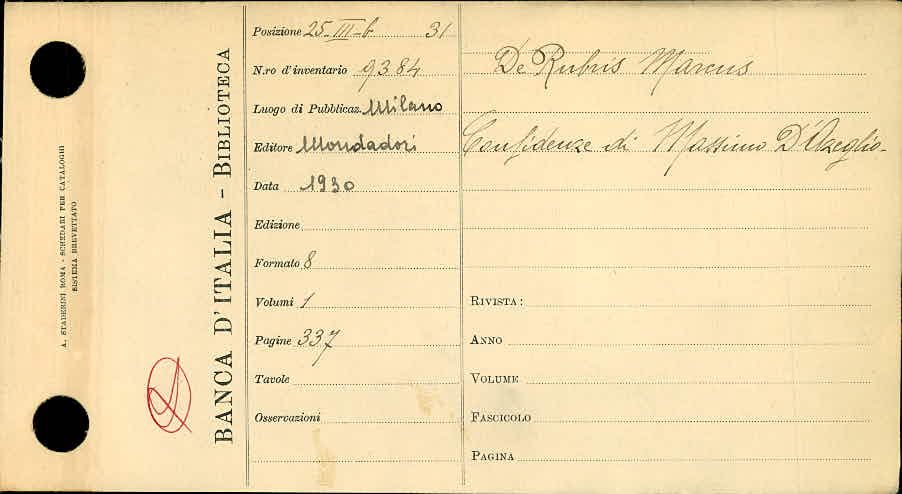 A. STADERINI ROMA - SCHEDARI PER CATALOGHI
SISTEMA BREVETTATO
BANCA D'ITALIA - BIBLIOTECA
Posizione 25-III-b 31
N.ro d'inventario 9384
Luogo di Pubblicaz. Milano
Editore Mondadori
Data 1930
Edizione
Formato 8
Volumi 1
Pagine 337
Tavole
Osservazioni
De Rubris Marcus
Confidenze di Massimo D'Azeglio.
RIVISTA:
ANNO
VOLUME
FASCICOLO
PAGINA